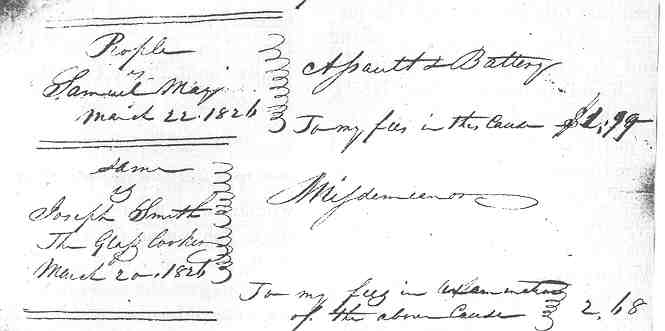 People
vs
Samuel May
March 22. 1826
Assault & Battery
To my fees in this Cause $1.99
Same
vs
Joseph Smith
The Glass looker
March 20. 1826
Misdemeanor
To my fees in examination
of the above Cause 2.68